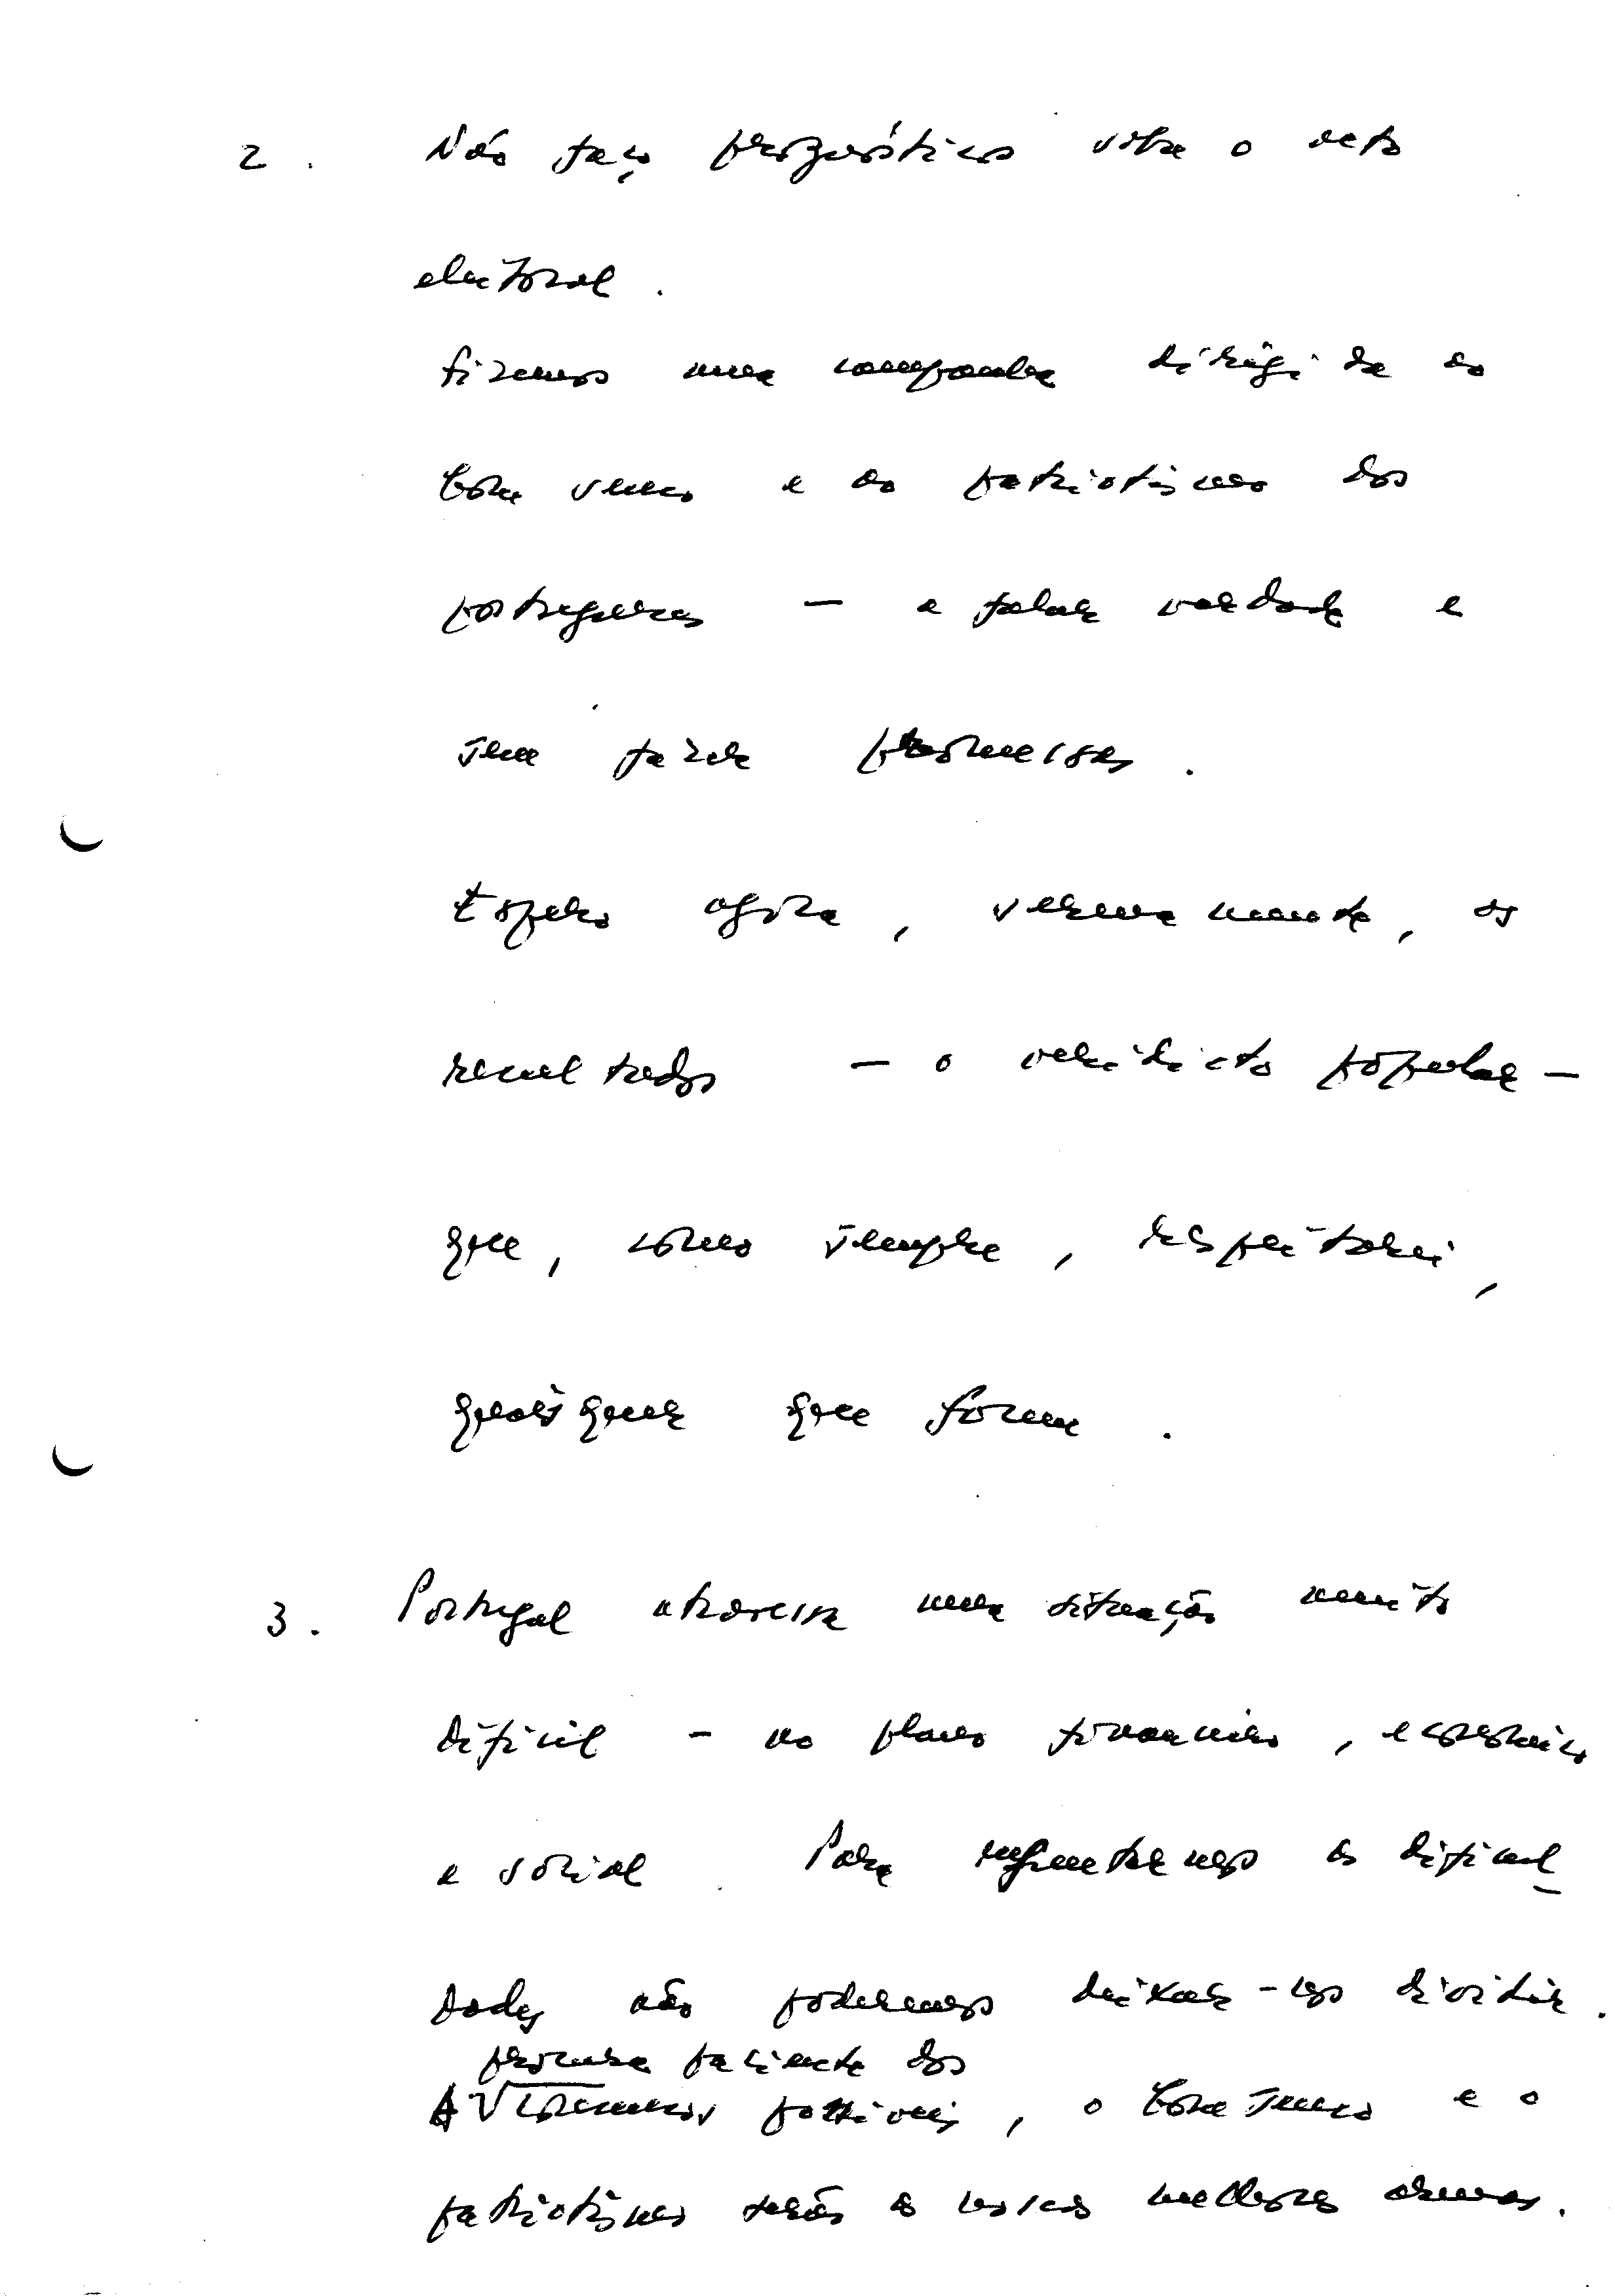 2. Não faço prognósticos sobre o acto
eleitoral.
Fizemos uma campanha dirigida ao
bom senso e ao patriotismo dos
portugueses — a falar verdade e
sem fazer promessas.
Espero agora, serenamente, os
resultados — o veridicto popular —
que, como sempre, respeitarei,
quaisquer que forem.
3. Portugal atravessa uma situação muito
difícil - no plano financeiro, económico
e social. Para enfrentarmos as dificul-
dades não poderemos deixar-nos dividir.
procura paciente dos
A consensos possíveis, o bom senso e o
patriotismo serão as nossas melhores armas.